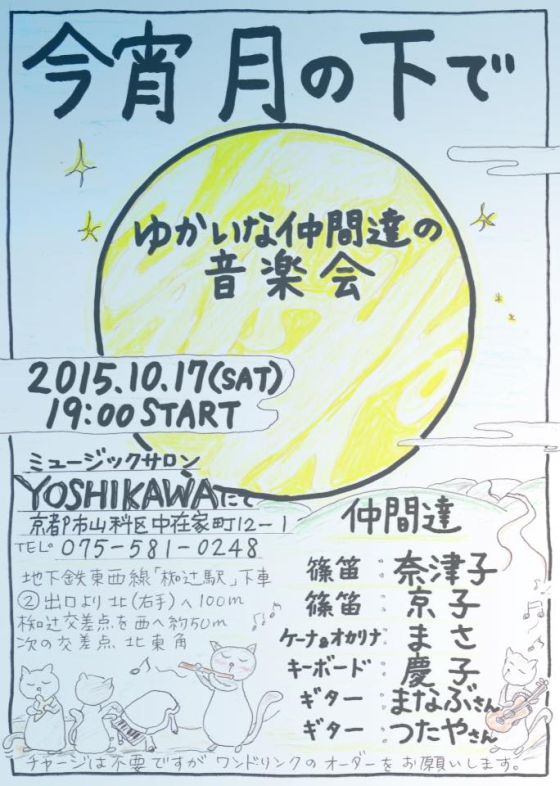 今宵月の下で
ゆかいな仲間達の
音楽会
2015.10.17(SAT)
19:00 START
ミュージックサロン
YOSHIKAWAにて
京都市山科区中在家町12-1
TEL 075-581-0248
地下鉄東西線「椥辻駅」下車
②出口より北(右手)へ100m
椥辻交差点を西へ約50m
次の交差点北東角
仲間達
篠笛:奈津子
篠笛:京子
ケーナ&オカリナ:まさ
キーボード:慶子
ギター:まなぶさん
ギター:つたやさん
チャージは不要ですがワンドリンクのオーダーをお願いします。